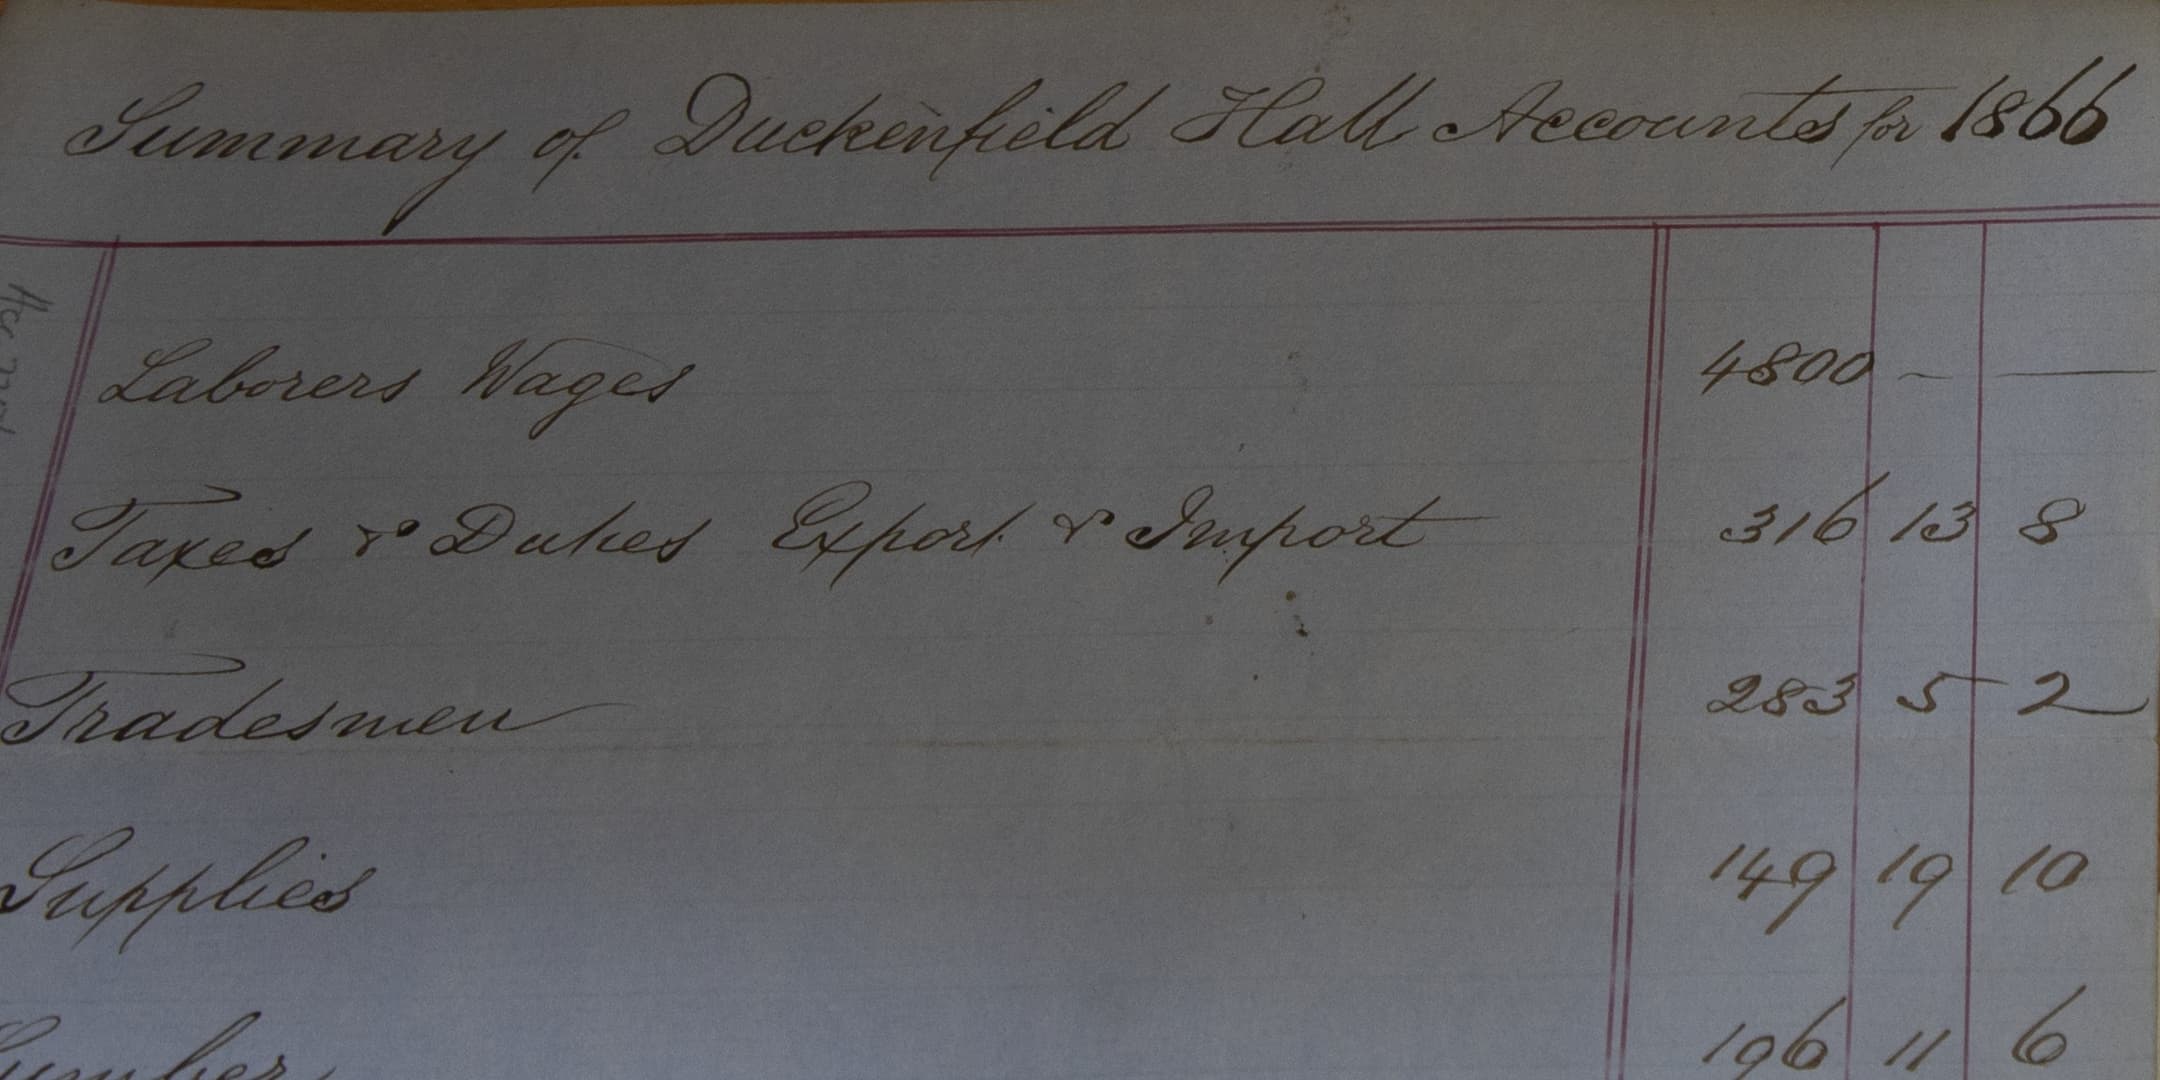 Summary of Duckenfield Hall Accounts for 1866
Laborers Wages 4800 — —
Taxes & Duties Export & Import 316 13 8
Tradesmen 283 5 2
Supplies 149 19 10
Lumber 196 11 6